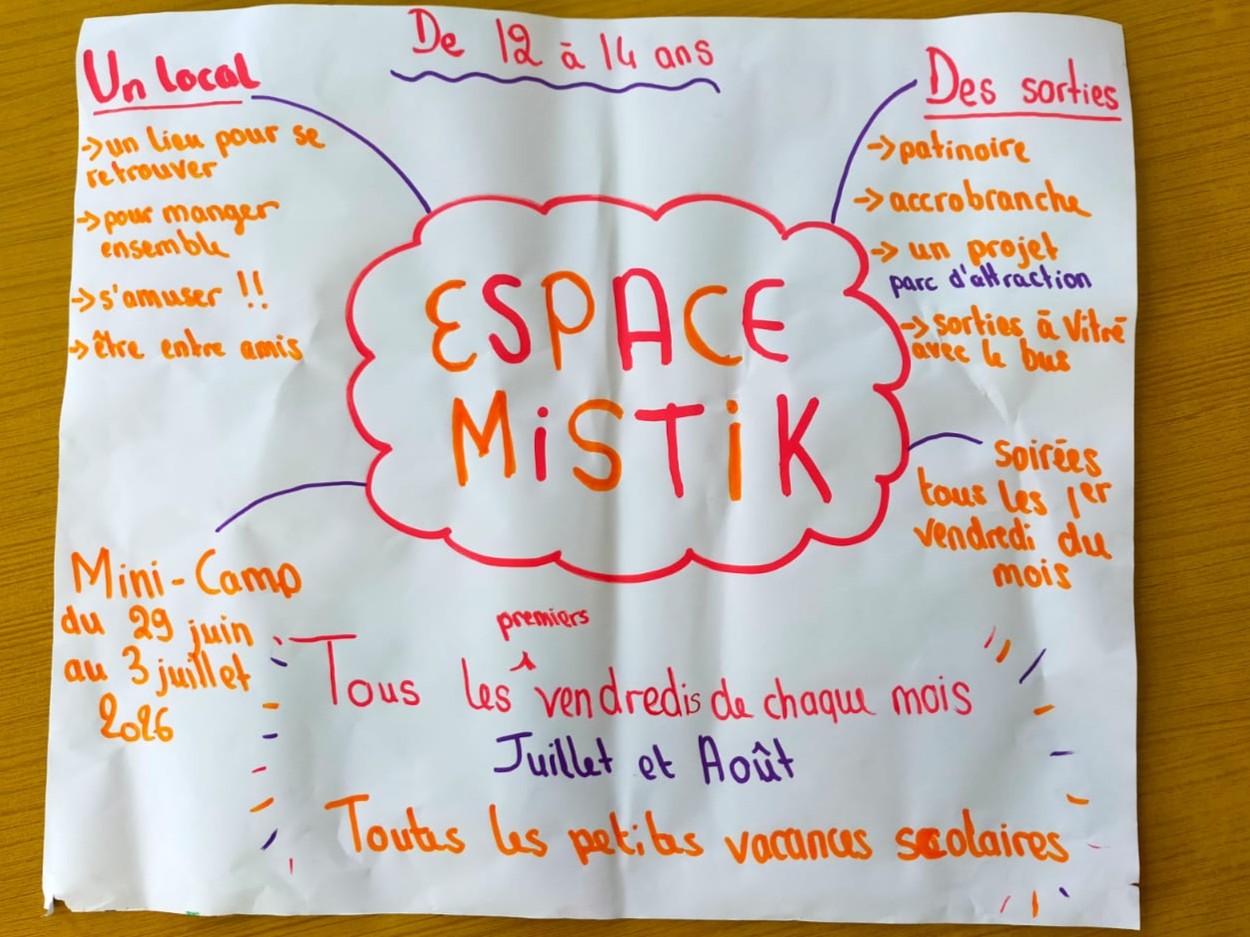 De 12 à 14 ans
Un local
→un lieu pour se
retrouver
→pour manger
ensemble
→s'amuser !!
→être entre amis
Des sorties
→patinoire
→accrobranche
→ un projet
parc d'attraction
→sorties à Vitré
avec le bus
ESPACE
MiSTiK
soirées
tous les 1er
vendredi du
mois
Mini-Camp
du 29 juin
au 3 juillet
2026
premiers
Tous les vendredis de chaque mois
Juillet et Août
Toutes les petites vacances scolaires